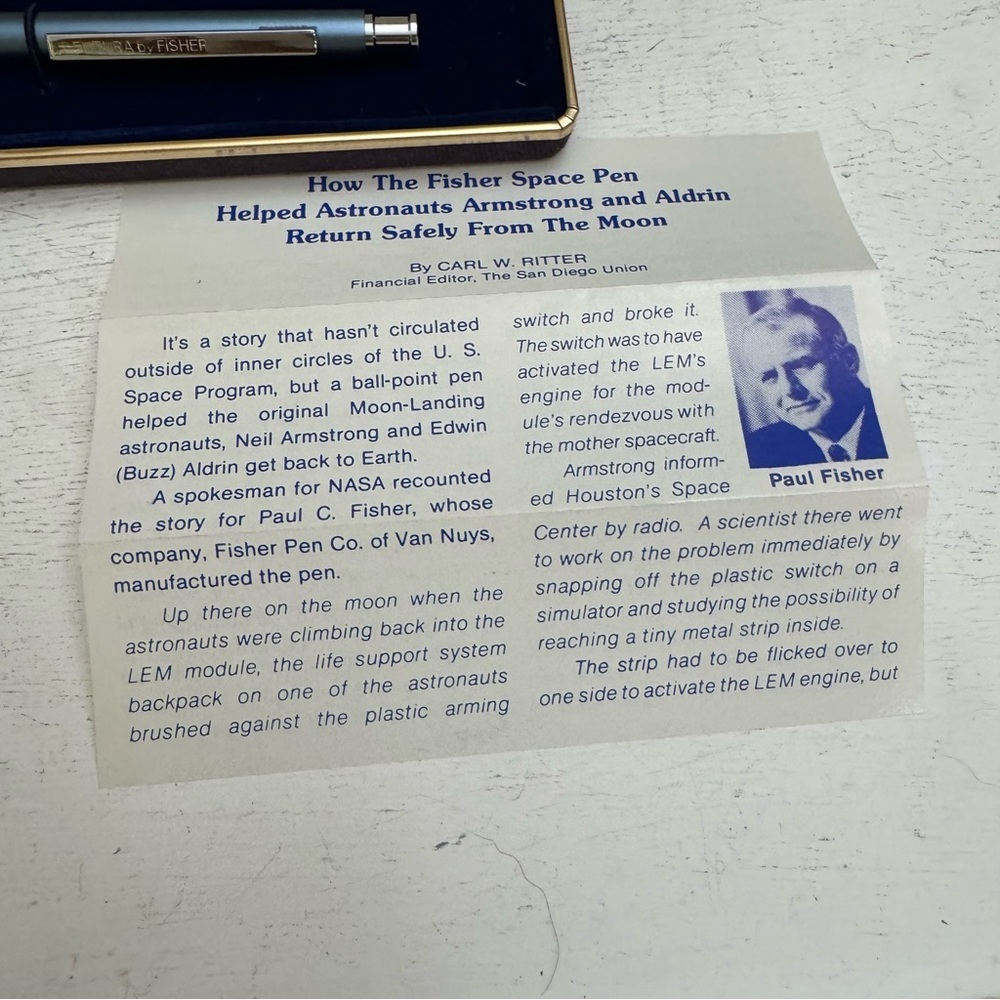 by FISHER
How The Fisher Space Pen
Helped Astronauts Armstrong and Aldrin
Return Safely From The Moon
By CARL W. RITTER
Financial Editor, The San Diego Union
It's a story that hasn't circulated
outside of inner circles of the U. S.
Space Program, but a ball-point pen
helped the original Moon-Landing
astronauts, Neil Armstrong and Edwin
(Buzz) Aldrin get back to Earth.
A spokesman for NASA recounted
the story for Paul C. Fisher, whose
company, Fisher Pen Co. of Van Nuys,
manufactured the pen.
Up there on the moon when the
astronauts were climbing back into the
LEM module, the life support system
backpack on one of the astronauts
brushed against the plastic arming
switch and broke it.
The switch was to have
activated the LEM's
engine for the mod-
ule's rendezvous with
the mother spacecraft.
Armstrong inform-
ed Houston's Space
Paul Fisher
Center by radio. A scientist there went
to work on the problem immediately by
snapping off the plastic switch on a
simulator and studying the possibility of
reaching a tiny metal strip inside.
The strip had to be flicked over to
one side to activate the LEM engine, but